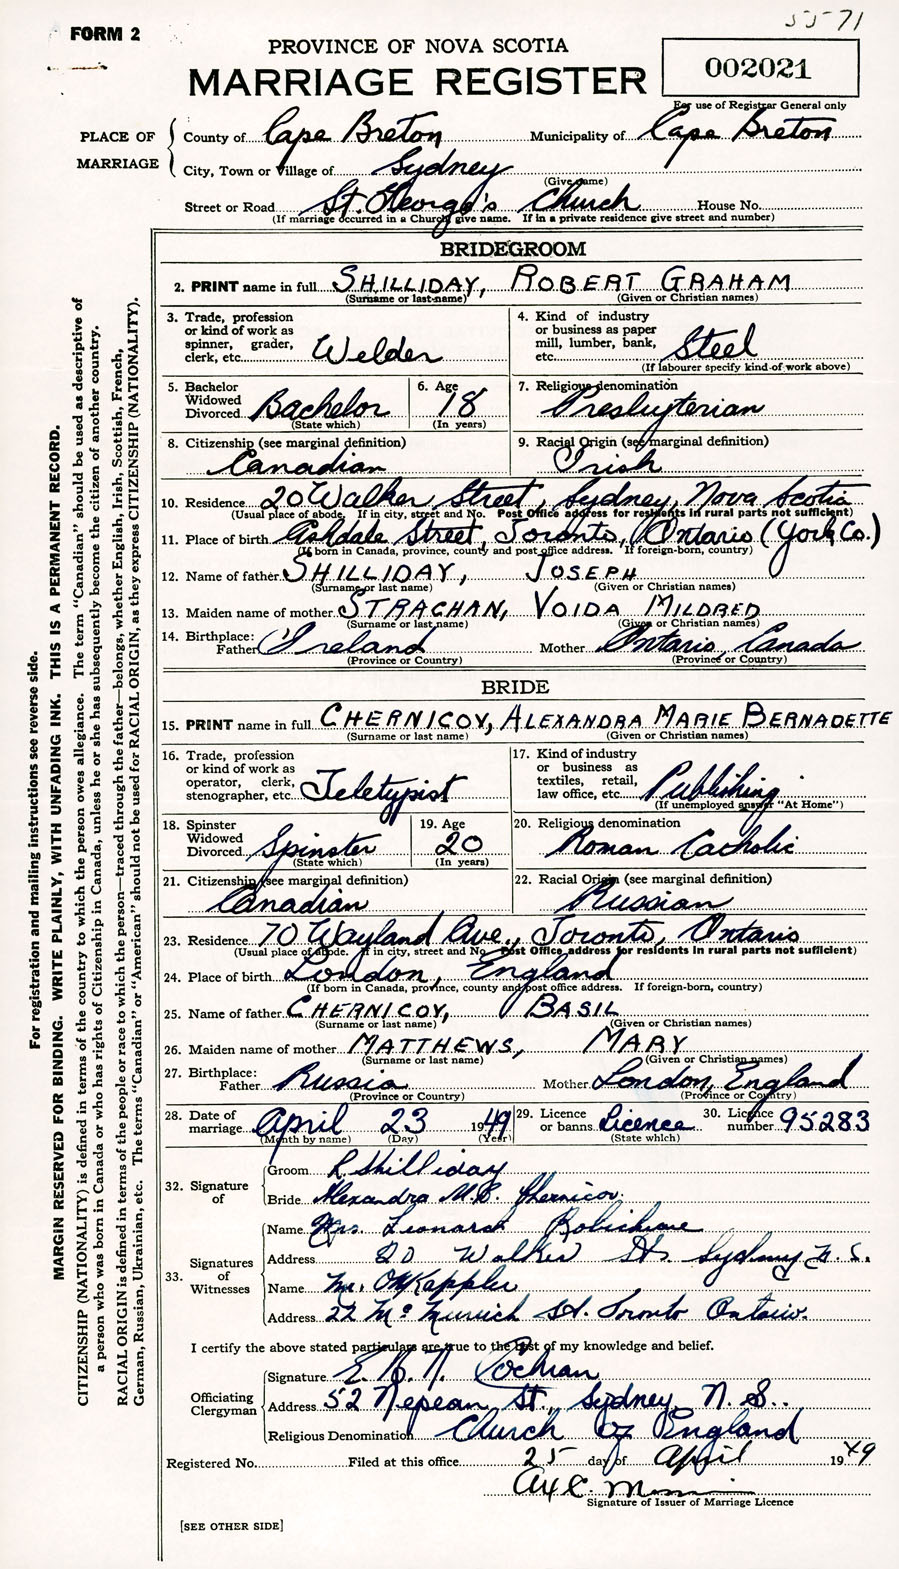 55-71
FORM 2
PROVINCE OF NOVA SCOTIA
MARRIAGE REGISTER
002021
For use of Registrar General only
PLACE OF MARRIAGE
County of Cape Breton Municipality of Cape Breton
City, Town or Village of Sydney
(Give name)
Street or Road St. George's Church House No.
(If marriage occurred in a Church give name. If in a private residence give street and number)
BRIDEGROOM
2. PRINT name in full SHILLIDAY, ROBERT GRAHAM
(Surname or last name) (Given or Christian names)
3. Trade, profession or kind of work as spinner, grader, clerk, etc. Welder
4. Kind of industry or business as paper mill, lumber, bank, etc. Steel
(If labourer specify kind of work above)
5. Bachelor Widowed Divorced Bachelor
(State which)
6. Age 18
(In years)
7. Religious denomination Presbyterian
8. Citizenship (see marginal definition) Canadian
9. Racial Origin (see marginal definition) Irish
10. Residence 20 Walker Street, Sydney, Nova Scotia
(Usual place of abode. If in city, street and No. Post Office address for residents in rural parts not sufficient)
11. Place of birth Ashdale Street, Toronto, Ontario (York Co.)
(If born in Canada, province, county and post office address. If foreign-born, country)
12. Name of father SHILLIDAY, JOSEPH
(Surname or last name) (Given or Christian names)
13. Maiden name of mother STRACHAN, VOIDA MILDRED
(Surname or last name) (Given or Christian names)
14. Birthplace: Father Ireland Mother Ontario, Canada
(Province or Country) (Province or Country)
BRIDE
15. PRINT name in full CHERNICOV, ALEXANDRA MARIE BERNADETTE
(Surname or last name) (Given or Christian names)
16. Trade, profession or kind of work as operator, clerk, stenographer, etc. Teletypist
17. Kind of industry or business as textiles, retail, law office, etc. Publishing
(If unemployed answer "At Home")
18. Spinster Widowed Divorced Spinster
(State which)
19. Age 20
(In years)
20. Religious denomination Roman Catholic
21. Citizenship (see marginal definition) Canadian
22. Racial Origin (see marginal definition) Russian
23. Residence 70 Wayland Ave., Toronto, Ontario
(Usual place of abode. If in city, street and No. Post Office address for residents in rural parts not sufficient)
24. Place of birth London, England
(If born in Canada, province, county and post office address. If foreign-born, country)
25. Name of father CHERNICOV, BASIL
(Surname or last name) (Given or Christian names)
26. Maiden name of mother MATTHEWS, MARY
(Surname or last name) (Given or Christian names)
27. Birthplace: Father Russia Mother London, England
(Province or Country) (Province or Country)
28. Date of marriage April 23 1949
(Month by name) (Day) (Year)
29. Licence or banns Licence
(State which)
30. Licence number 95283
32. Signature of
Groom R Shilliday
Bride Alexandra M.B. Chernicov.
33. Signatures of Witnesses
Name Mrs. Leonard
Address 20 Walker St. Sydney N.S.
Name Mr. Kappler
Address 22 McMurrich St. Toronto Ontario.
I certify the above stated particulars are true to the best of my knowledge and belief.
Officiating Clergyman
Signature E. M. N. Cochran
Address 52 Nepean St., Sydney, N.S..
Religious Denomination Church of England
Registered No. Filed at this office 25 day of April 1949
Signature of Issuer of Marriage Licence
[SEE OTHER SIDE]
For registration and mailing instructions see reverse side.
MARGIN RESERVED FOR BINDING. WRITE PLAINLY, WITH UNFADING INK. THIS IS A PERMANENT RECORD.
CITIZENSHIP (NATIONALITY) is defined in terms of the country to which the person owes allegiance. The term "Canadian" should be used as descriptive of
a person who was born in Canada or who has rights of Citizenship in Canada, unless he or she has subsequently become the citizen of another country.
RACIAL ORIGIN is defined in terms of the people or race to which the person—traced through the father—belongs, whether English, Irish, Scottish, French,
German, Russian, Ukrainian, etc. The terms "Canadian" or "American" should not be used for RACIAL ORIGIN, as they express CITIZENSHIP (NATIONALITY).